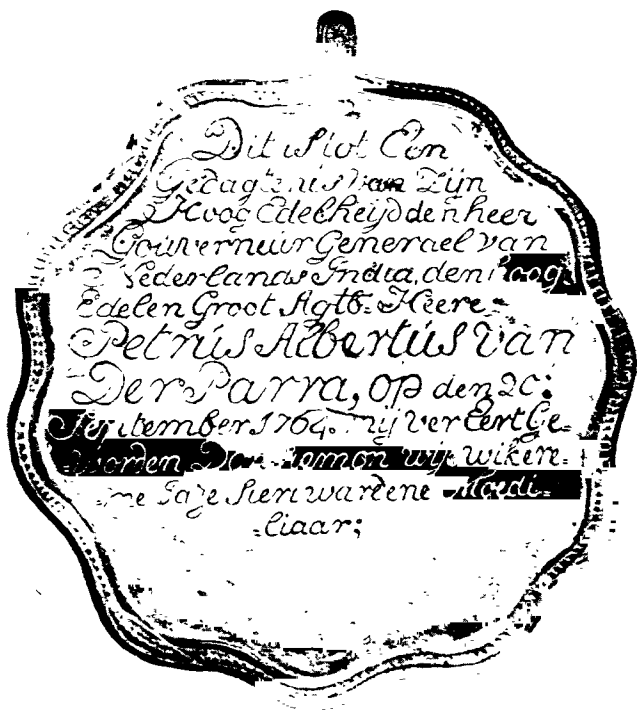 Dit is tot Een
Gedagtenis van Zijn
Hoog Edelheijd den heer
Gouverneur Generael van
Nederlands India, den Hoog
Edelen Groot Agtb. Heere
Petrus Albertus Van
Der Parra, op den 20:
September 1764. mij ver Eert Ge-
worden Don Simon wij wikere-
me Jaje Seri wardene Moedi-
liaar;